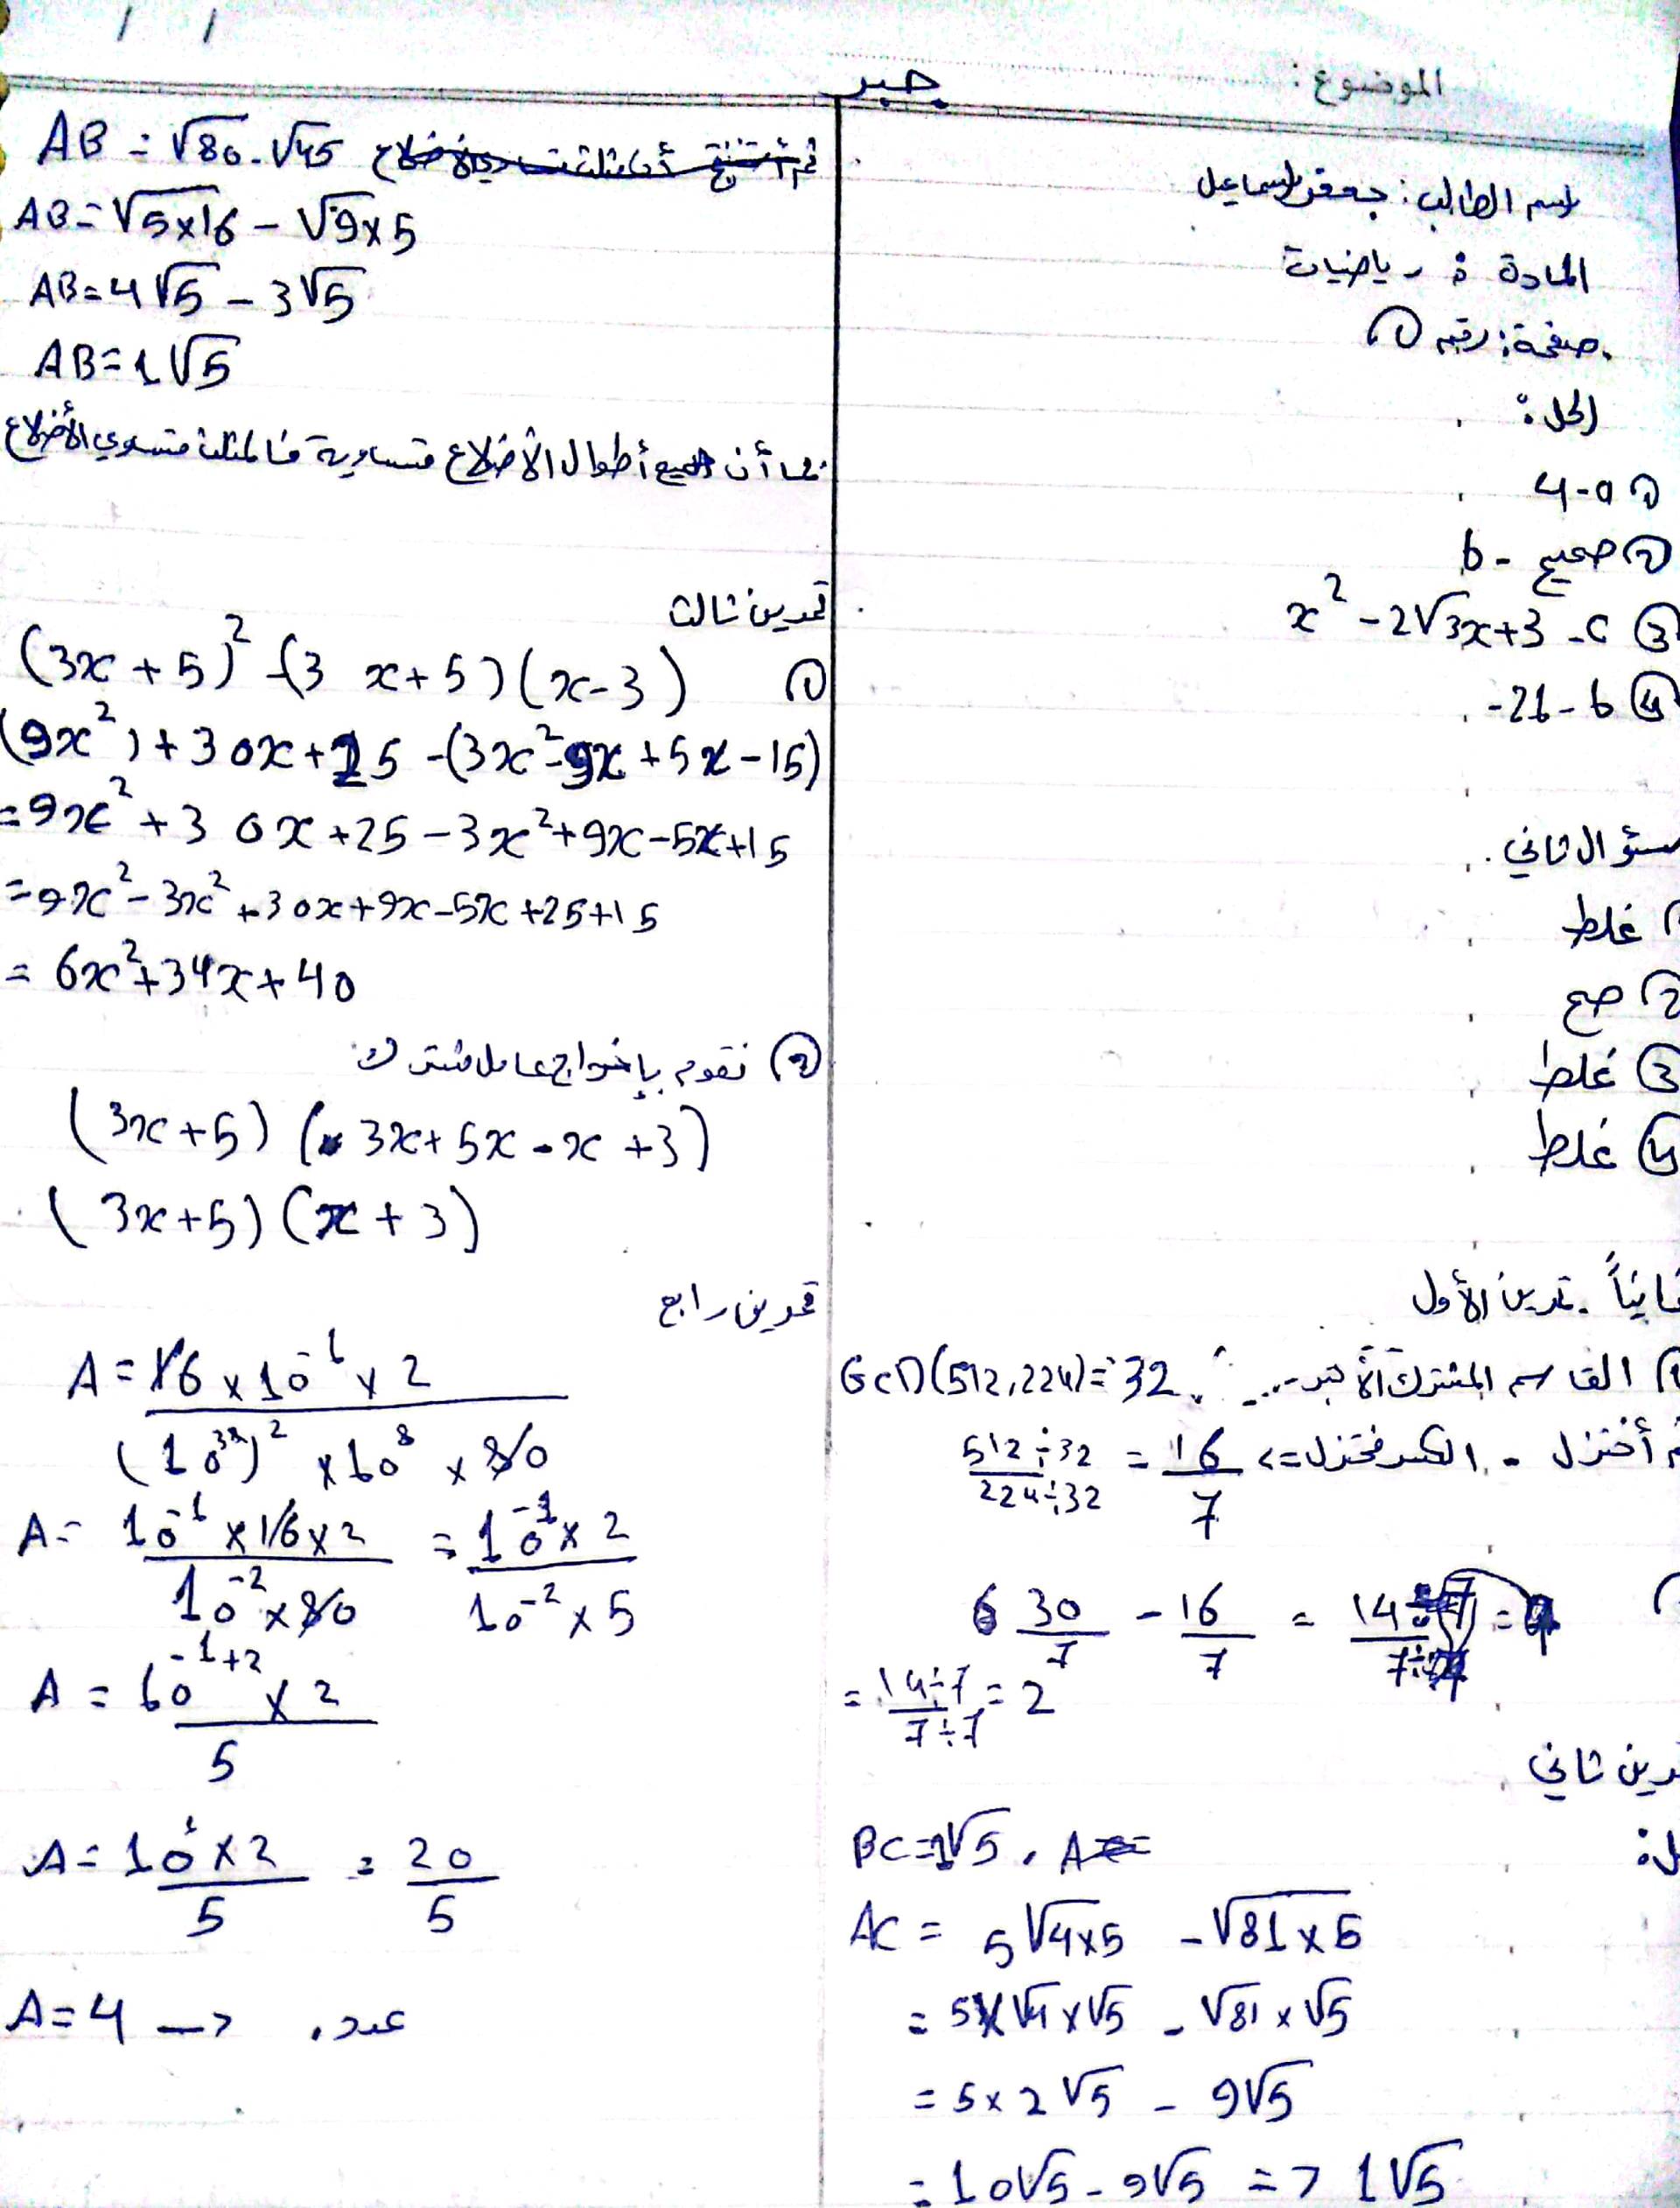 الموضوع :
جبر
اسم الطالب : جعفر اسماعيل
المادة : رياضيات
صفحة : رقم ①
الحل :
① a - 4
② صحيح - b
③ c - x² - 2√3x + 3
④ b - -21
سؤال ثاني .
غلط
② صح
③ غلط
④ غلط
ثانياً . تمرين الأول
① القاسم المشترك الأكبر GCD(512, 224) = 32
أختزل . الكسر مختزل => 512÷32 / 224÷32 = 16/7
30/7 - 16/7 = 14/7
= 14÷7 / 7÷7 = 2
تمرين ثاني
BC = 1√5 ,
AC = 5√4×5 - √81×5
= 5×√4×√5 - √81×√5
= 5×2√5 - 9√5
= 10√5 - 9√5 => 1√5
AB = √80 - √45
AB = √5×16 - √9×5
AB = 4√5 - 3√5
AB = 1√5
بما أن جميع أطوال الأضلاع متساوية فالمثلث متساوي الأضلاع
تمرين ثالث
① (3x + 5)² - (3x + 5)(x - 3)
(9x²) + 30x + 25 - (3x² - 9x + 5x - 15)
= 9x² + 30x + 25 - 3x² + 9x - 5x + 15
= 9x² - 3x² + 30x + 9x - 5x + 25 + 15
= 6x² + 34x + 40
② نقوم بإخراج عامل مشترك
(3x + 5) (3x + 5x - x + 3)
(3x + 5) (x + 3)
تمرين رابع
A = 16 × 10⁻¹ × 2 / (10³)² × 10⁸ × 80
A = 10⁻¹ × 16 × 2 / 10⁻² × 80 = 10⁻¹ × 2 / 10⁻² × 5
A = 10⁻¹⁺² × 2 / 5
A = 10¹ × 2 / 5 = 20 / 5
A = 4 → عدد .